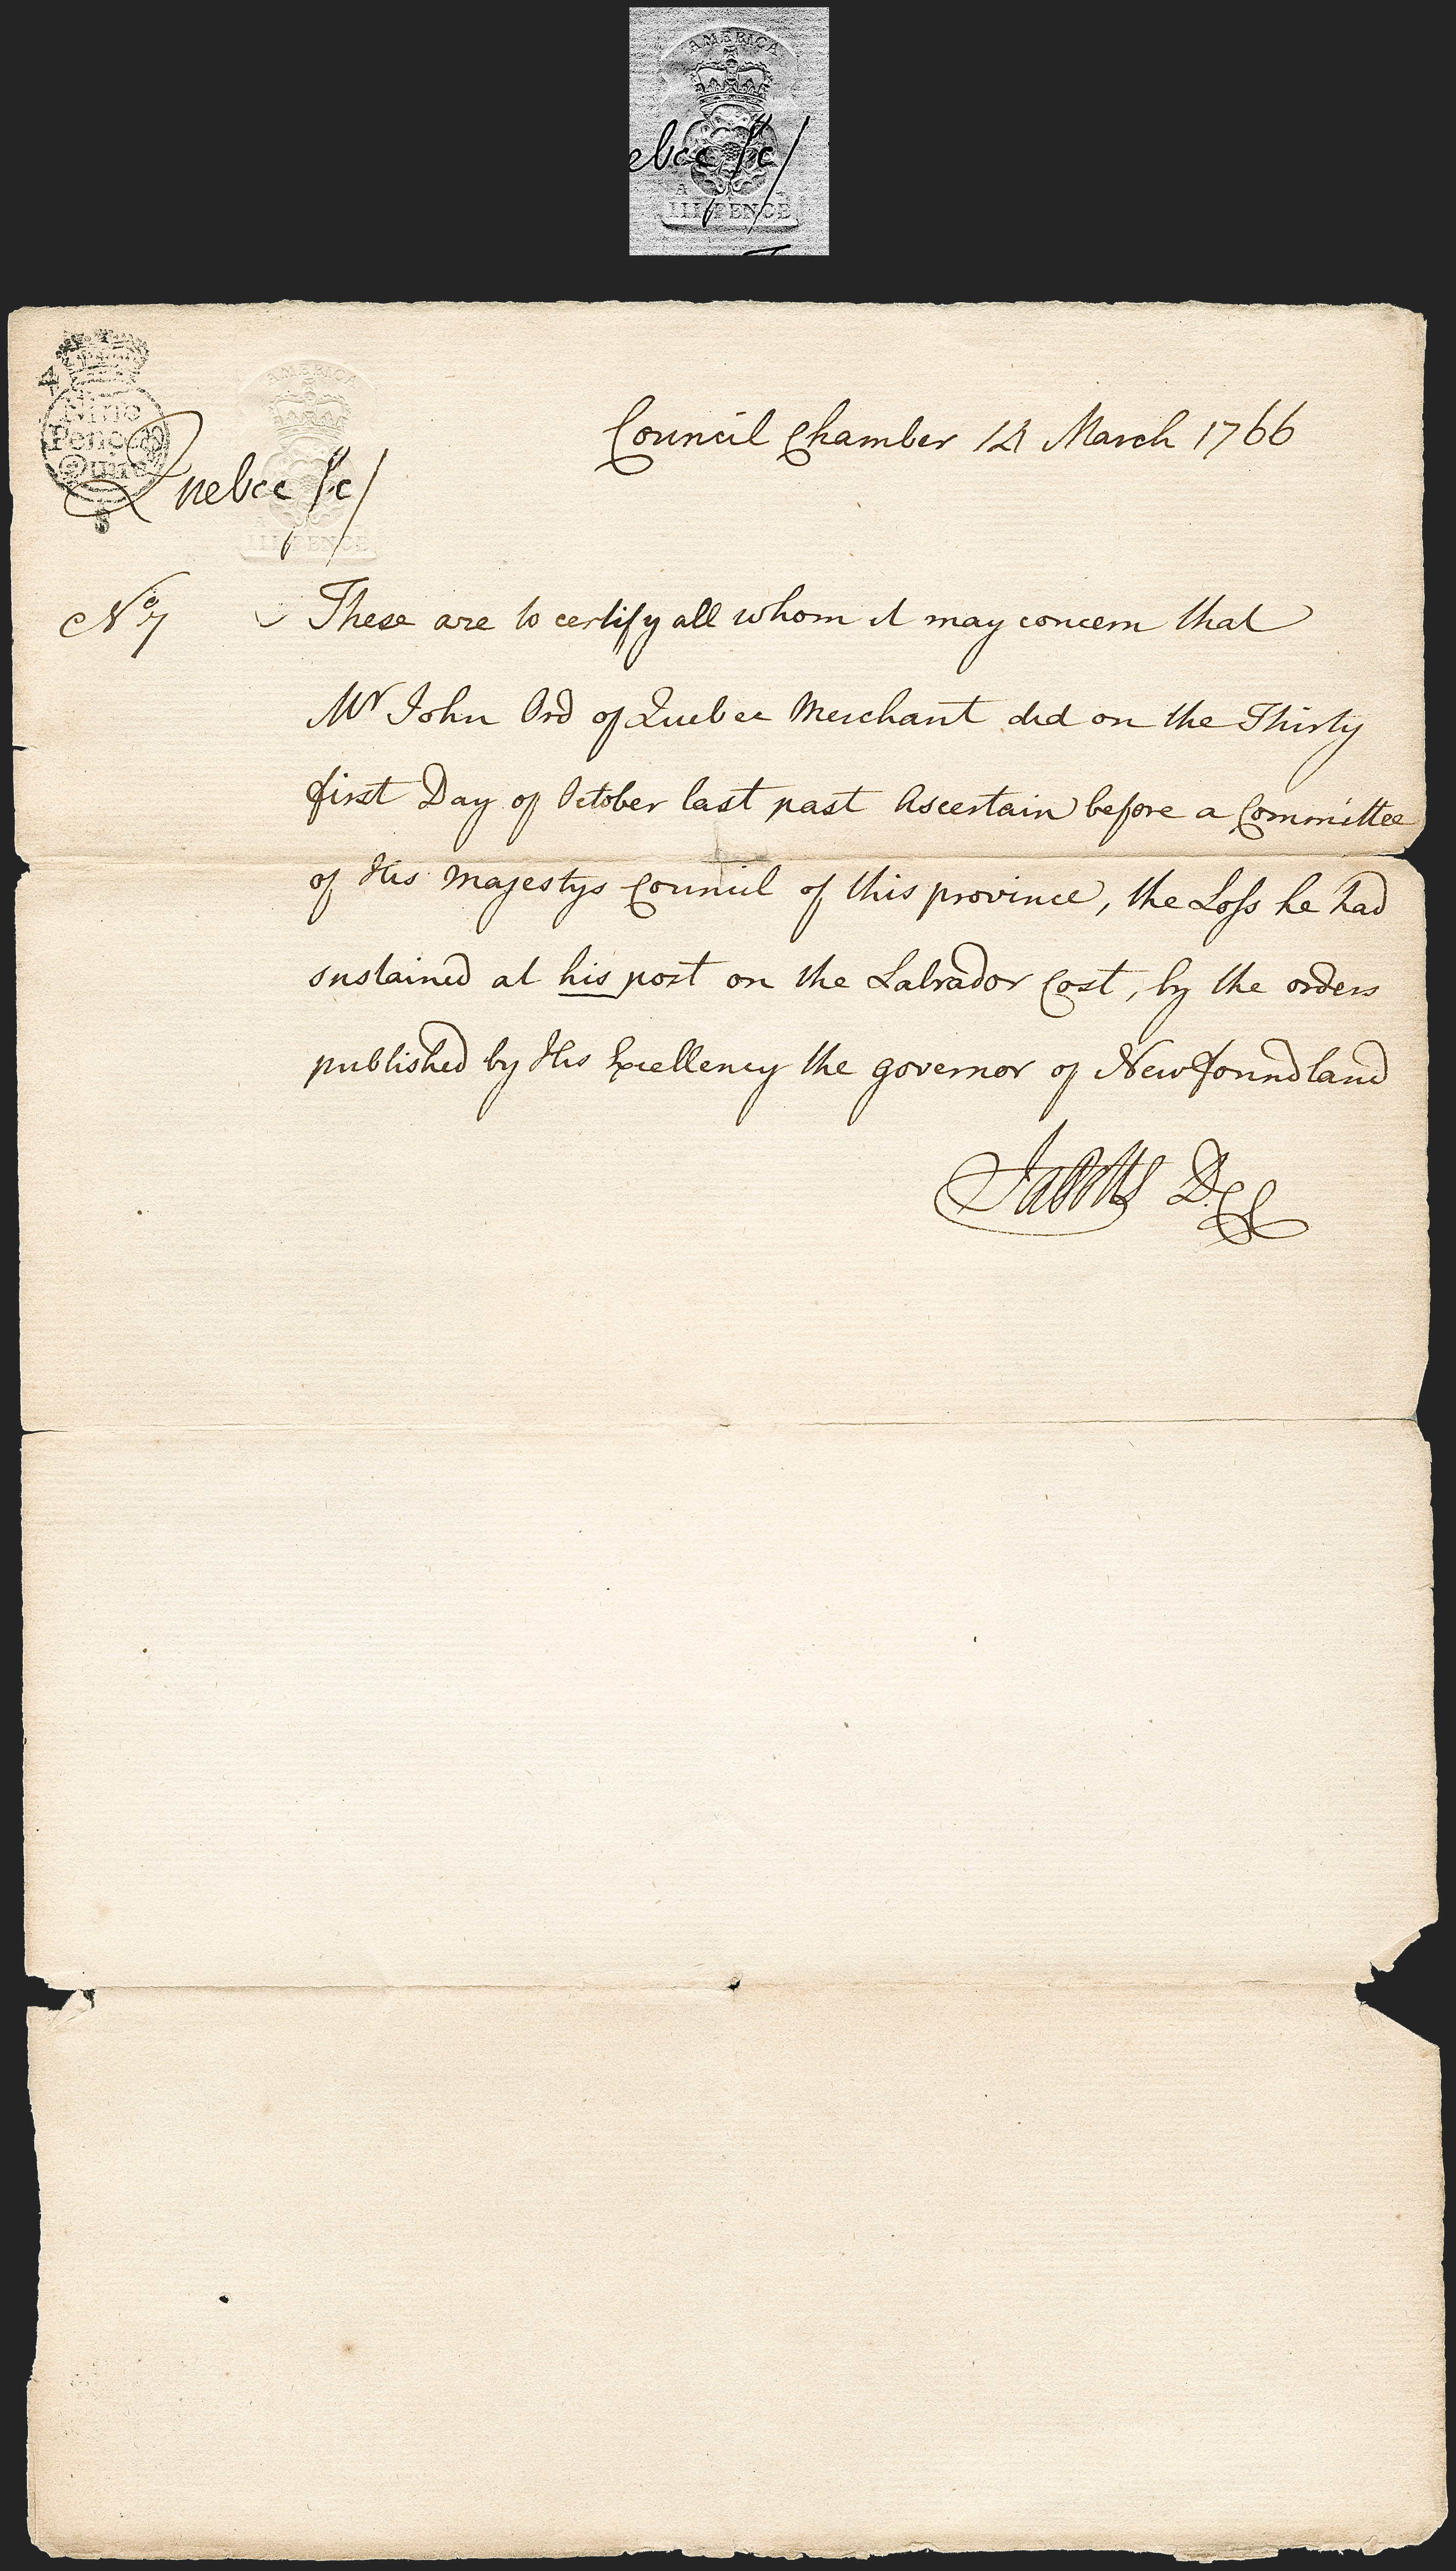 AMERICA
ebec ſc/
A
III PENCE
4
Nine
Pence
Quire
8
AMERICA
III PENCE
Council Chamber 14 March 1766
Quebec ſc/
No 7
These are to certify all whom it may concern that
Mr John Ord of Quebec Merchant did on the Thirty
first Day of October last past Ascertain before a Committee
of His Majestys Council of this province, the Loſs he had
sustained at his post on the Labrador Cost, by the orders
published by His Excellency the governor of Newfoundland